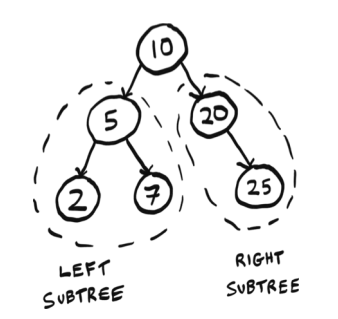 10
5
20
2
7
25
LEFT
SUBTREE
RIGHT
SUBTREE